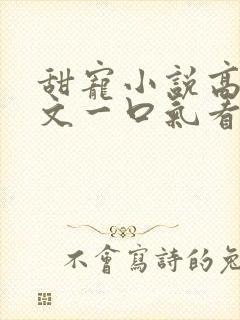 甜寵小說高
文一口氣看
不會寫詩的兔